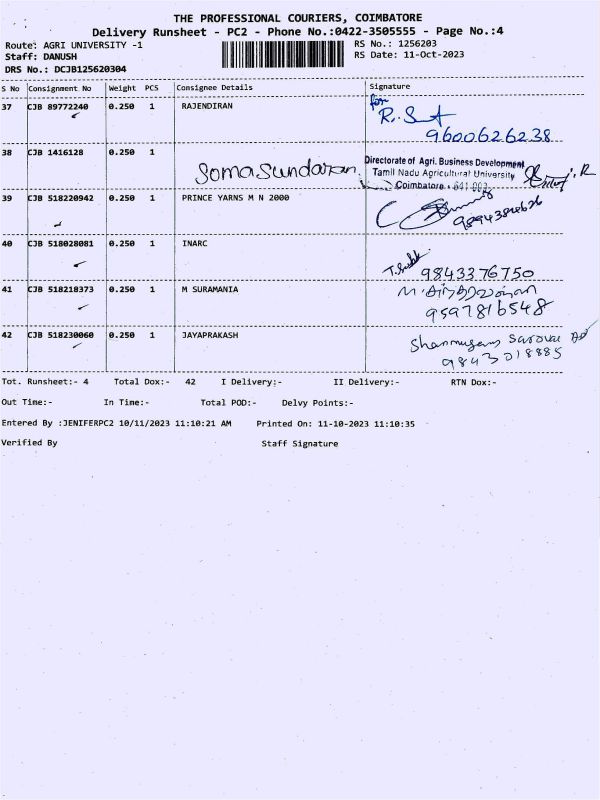 THE PROFESSIONAL COURIERS, COIMBATORE
Delivery Runsheet - PC2 - Phone No.:0422-3505555 - Page No.:4
Route: AGRI UNIVERSITY -1
RS No.: 1256203
Staff: DANUSH
RS Date: 11-Oct-2023
DRS No.: DCJB125620304
S No Consignment No Weight PCS Consignee Details Signature
37 CJB 89772240 0.250 1 RAJENDIRAN
for
9600626238
38 CJB 1416128 0.250 1
Somasundaran
Directorate of Agri. Business Development
Tamil Nadu Agricultural University
Coimbatore - 641 003
39 CJB 518220942 0.250 1 PRINCE YARNS M N 2000
40 CJB 518028081 0.250 1 INARC
9843376750
41 CJB 518218373 0.250 1 M SURAMANIA
9597816548
42 CJB 518230060 0.250 1 JAYAPRAKASH
Shanmugam
9843018885
Tot. Runsheet:- 4 Total Dox:- 42 I Delivery:- II Delivery:- RTN Dox:-
Out Time:- In Time:- Total POD:- Delvy Points:-
Entered By :JENIFERPC2 10/11/2023 11:10:21 AM Printed On: 11-10-2023 11:10:35
Verified By Staff Signature